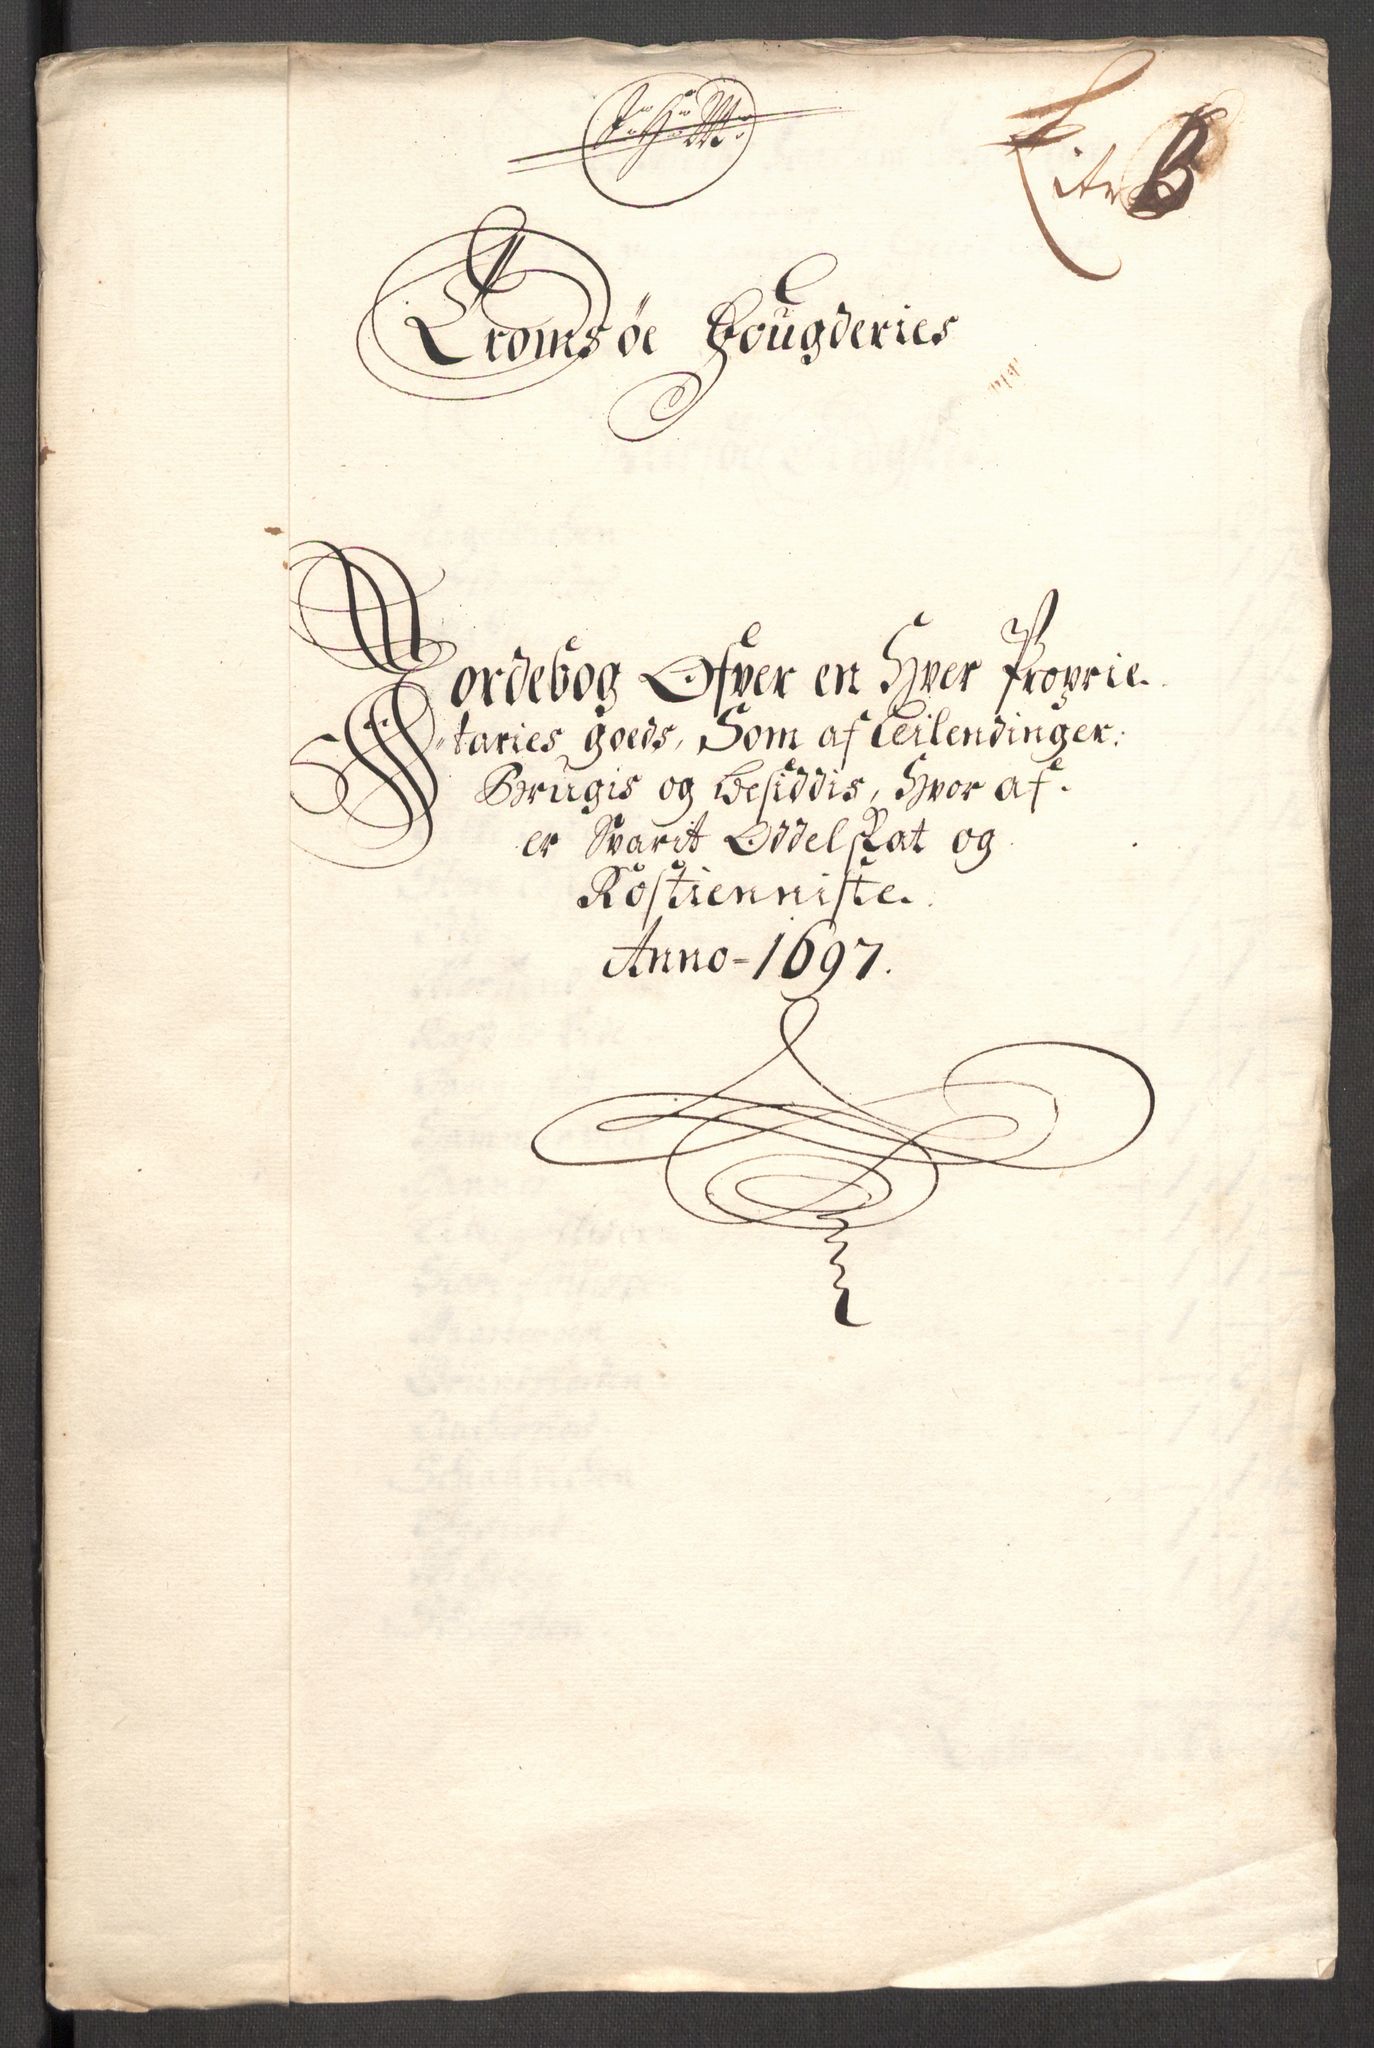 Litr B
Tromsøe Fougderies
Jordebog Ofver en Hver Proprie-
taries goeds, Som af Leilendinger
Brugis og besiddis, Hvor af
er Svarit Oddelskat og
Rostienniste.
Anno-1697.